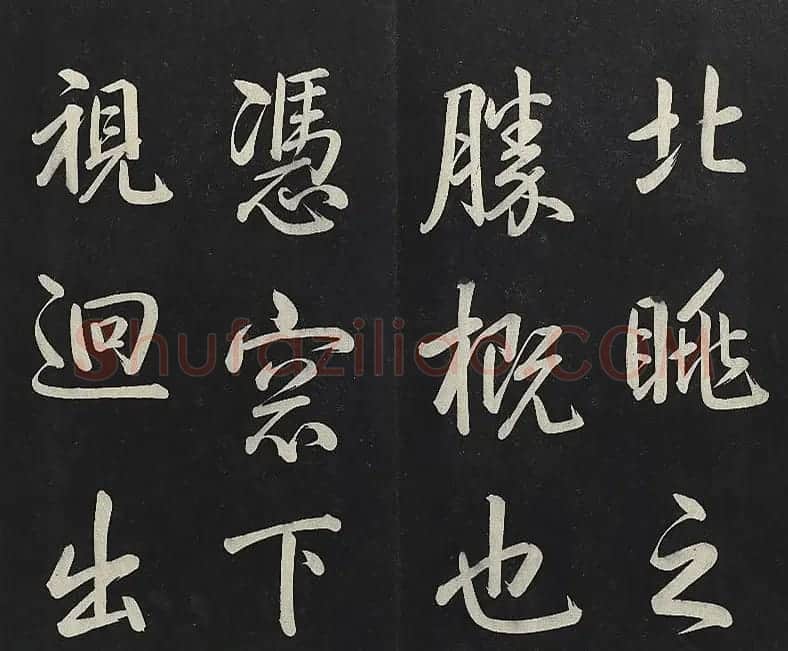 北眺之
勝概也
憑窓下
視迥出
Shufaziliao.COM